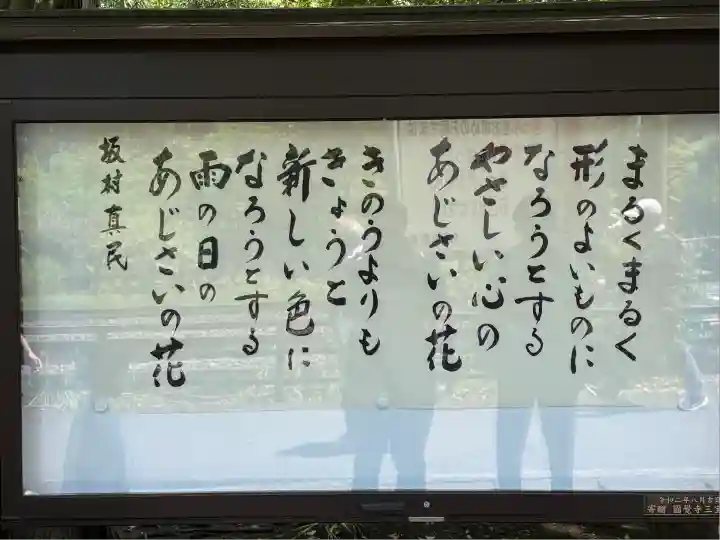 まるくまるく
形のよいものに
なろうとする
やさしい心の
あじさいの花
きのうよりも
きょうと
新しい色に
なろうとする
雨の日の
あじさいの花
坂村真民
令和二年八月吉
寄贈 圓覺寺三